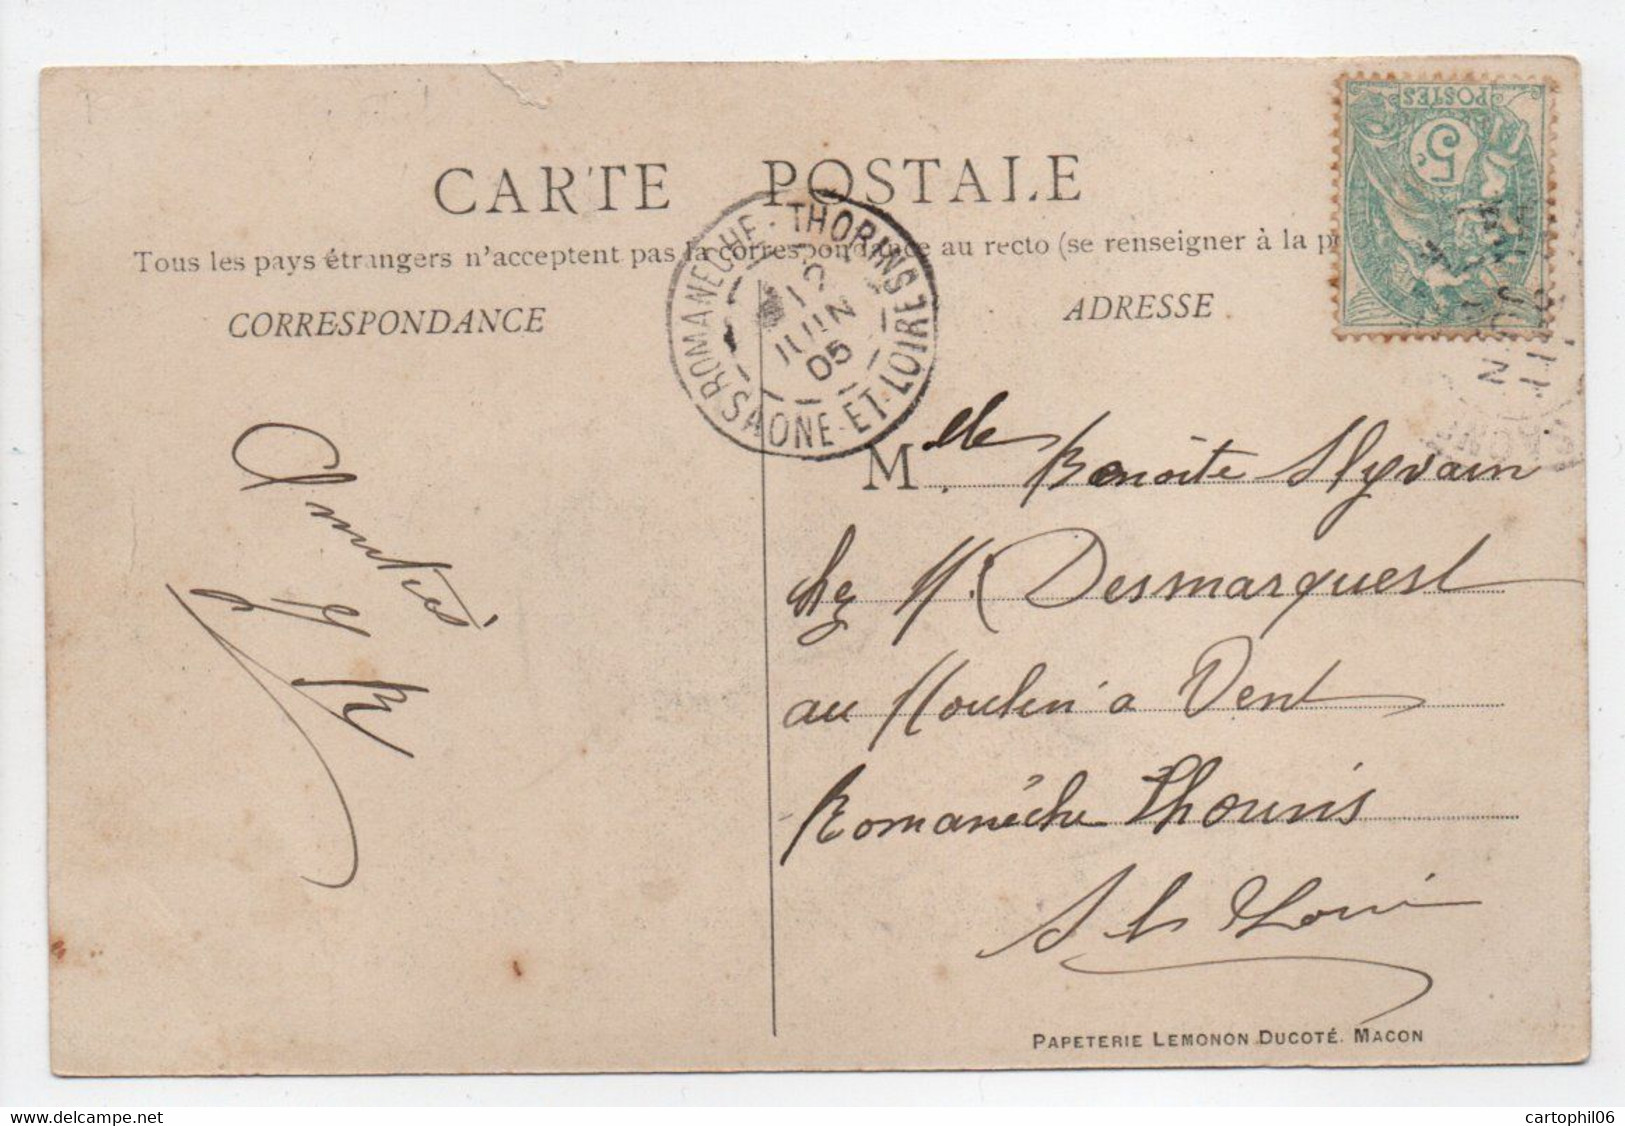 CARTE POSTALE
Tous les pays étrangers n'acceptent pas la correspondance au recto (se renseigner à la
CORRESPONDANCE
ADRESSE
POSTES
5c
ROMANECHE-THORINS
12
JUIN
05
SAONE-ET-LOIRE
Amitiés
Mlle Benoite Sylvain
chez M. Desmarquest
au Moulin à Vent
Romanèche Thorins
S et Loire
PAPETERIE LEMONON DUCOTÉ. MACON
cartophil06